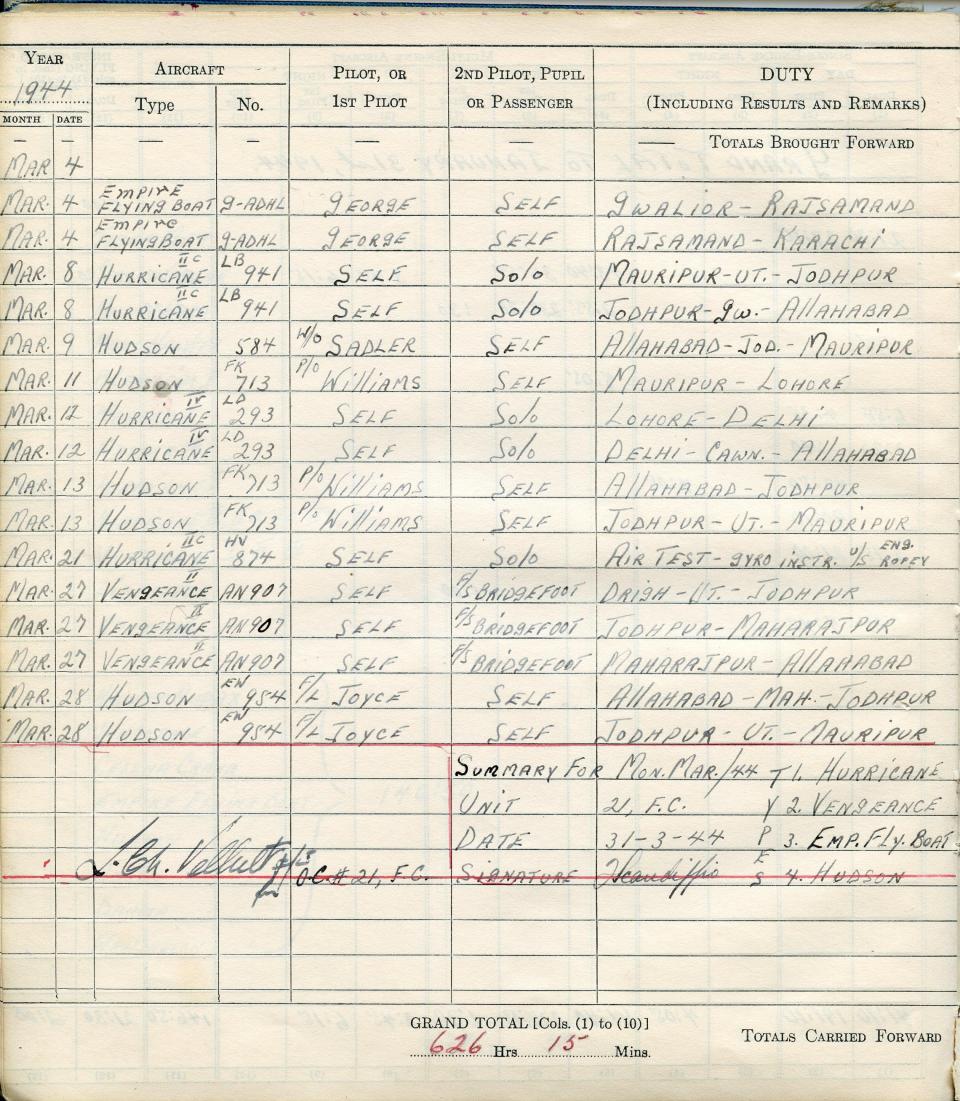 YEAR AIRCRAFT PILOT, OR 2ND PILOT, PUPIL DUTY
1944 Type No. 1ST PILOT OR PASSENGER (INCLUDING RESULTS AND REMARKS)
MONTH DATE
— — — — — — — TOTALS BROUGHT FORWARD
MAR 4
MAR. 4 EMPIRE FLYING BOAT G-ADHL GEORGE SELF GWALIOR - RAJSAMAND
MAR. 4 EMPIRE FLYING BOAT G-ADHL GEORGE SELF RAJSAMAND - KARACHI
MAR. 8 HURRICANE IIC LB 941 SELF SOLO MAURIPUR - UT. - JODHPUR
MAR. 8 HURRICANE IIC LB 941 SELF SOLO JODHPUR - GW. - ALLAHABAD
MAR. 9 HUDSON 584 W/O SADLER SELF ALLAHABAD - JOD. - MAURIPUR
MAR. 11 HUDSON FK 713 P/O WILLIAMS SELF MAURIPUR - LOHORE
MAR. 12 HURRICANE IV LD 293 SELF SOLO LOHORE - DELHI
MAR. 12 HURRICANE IV LD 293 SELF SOLO DELHI - CAWN. - ALLAHABAD
MAR. 13 HUDSON FK 713 P/O WILLIAMS SELF ALLAHABAD - JODHPUR
MAR. 13 HUDSON FK 713 P/O WILLIAMS SELF JODHPUR - UT. - MAURIPUR
MAR. 21 HURRICANE IIC HV 874 SELF SOLO AIR TEST - GYRO INSTR. U/S ENG. ROPEY
MAR. 27 VENGEANCE II AN907 SELF F/S BRIDGEFOOT DRIGH - UT. - JODHPUR
MAR. 27 VENGEANCE II AN907 SELF F/S BRIDGEFOOT JODHPUR - MAHARAJPUR
MAR. 27 VENGEANCE II AN907 SELF F/S BRIDGEFOOT MAHARAJPUR - ALLAHABAD
MAR. 28 HUDSON EW 954 F/L JOYCE SELF ALLAHABAD - MAH. - JODHPUR
MAR. 28 HUDSON EW 954 F/L JOYCE SELF JODHPUR - UT. - MAURIPUR
SUMMARY FOR MON. MAR./44 T 1. HURRICANE
UNIT 21, F.C. Y 2. VENGEANCE
DATE 31-3-44 P 3. EMP. FLY. BOAT
E
O.C. # 21, F.C. SIGNATURE S 4. HUDSON
GRAND TOTAL [Cols. (1) to (10)]
626 Hrs. 15 Mins.
TOTALS CARRIED FORWARD